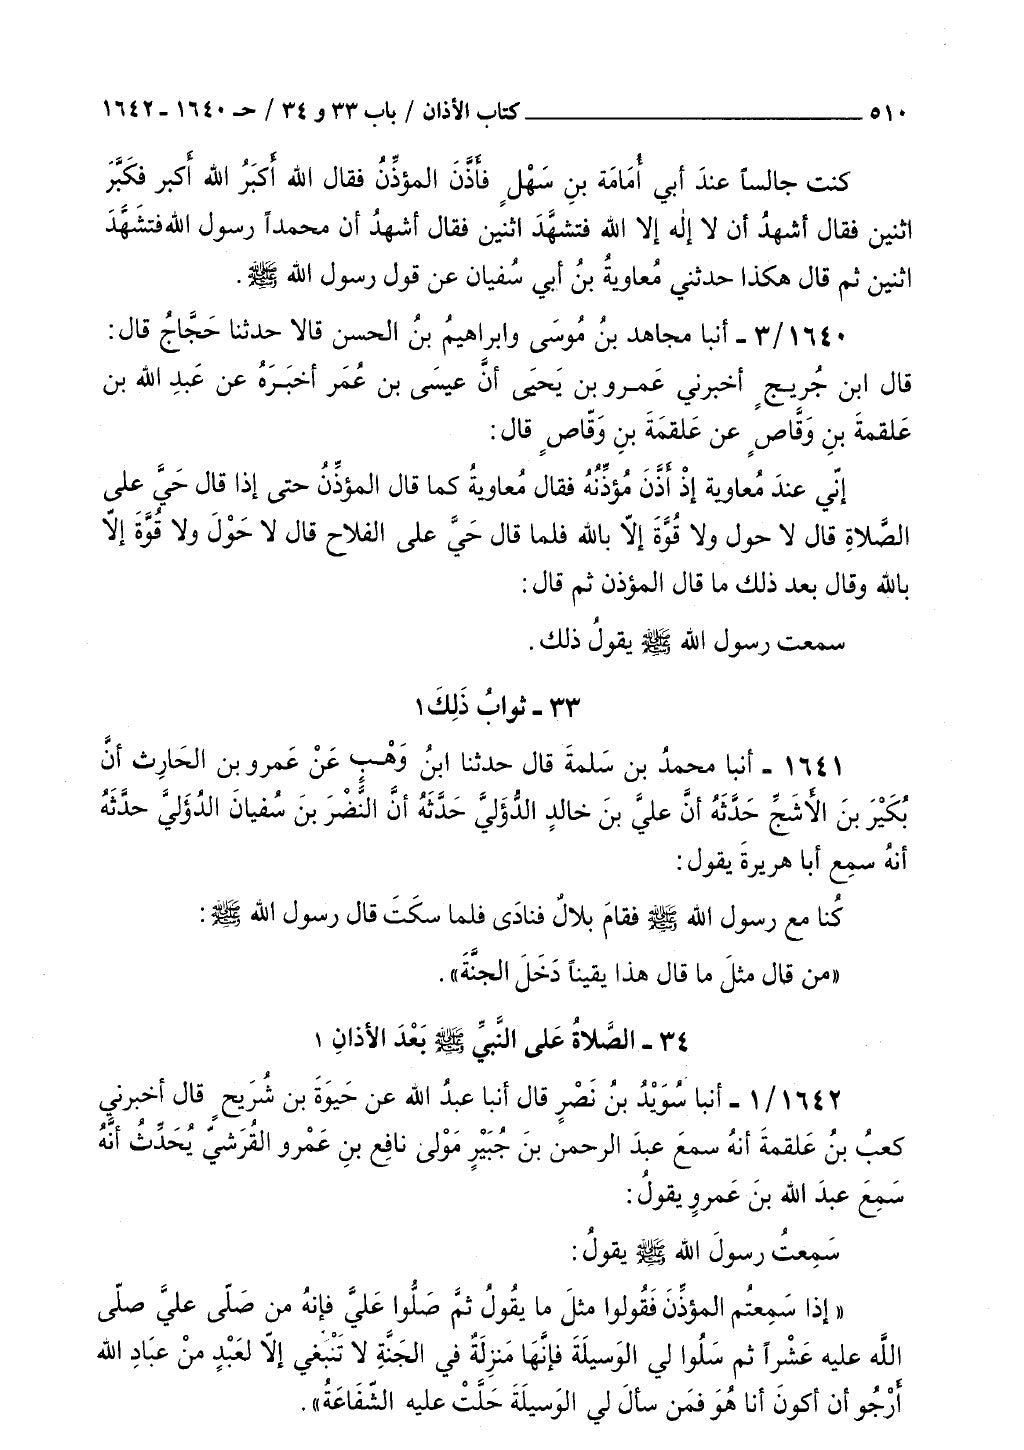 ٥١٠ ــــــــــــــــــــــــــــــــــــــــــــ كتاب الأذان / باب ٣٣ و ٣٤ / حـ ١٦٤٠ ـ ١٦٤٢
كنت جالساً عندَ أبي أُمَامَة بنِ سَهْلٍ فأَذَّنَ المؤذِّنُ فقال الله أكبَرُ الله أكبر فكَبَّرَ
اثنين فقال أشهدُ أن لا إلٰه إلا الله فتشهَّدَ اثنين فقال أشهدُ أن محمداً رسول الله فتشَهَّدَ
اثنين ثم قال هكذا حدثني مُعاويةُ بنُ أبي سُفيان عن قول رسول الله ﷺ .
٣/١٦٤٠ ـ أنبا مجاهد بنُ مُوسَى وابراهيمُ بنُ الحسن قالا حدثنا حَجَّاجُ قال :
قال ابن جُريجٍ أخبرني عَمرو بن يَحيَى أنَّ عيسَى بن عُمَر أخبَرَهُ عن عَبدِ الله بن
عَلقمةَ بنِ وَقَّاصٍ عن عَلقمَةَ بنِ وَقّاصٍ قال :
إنّي عندَ مُعاوية إذْ أَذَّنَ مُؤذِّنُهُ فقال مُعاويةُ كما قال المؤذِّنُ حتى إذا قال حَيَّ على
الصَّلاةِ قال لا حول ولا قُوَّةَ إلّا بالله فلما قال حَيَّ على الفلاح قال لا حَوْلَ ولا قُوَّةَ إلّا
بالله وقال بعد ذلك ما قال المؤذن ثم قال :
سمعت رسول الله ﷺ يقولُ ذلك .
٣٣ ـ ثوابُ ذَلِكَ ١
١٦٤١ ـ أنبا محمدُ بن سَلمةَ قال حدثنا ابنُ وَهْبٍ عَنْ عَمرو بن الحَارِث أنَّ
بُكَيْرَ بنَ الأَشَجِّ حَدَّثَهُ أن عليَّ بنَ خالدٍ الدُّؤَليَّ حَدَّثَهُ أنَّ النَّضْرَ بنَ سُفيانَ الدُؤَليَّ حدَّثَهُ
أنهُ سمِع أبا هريرةَ يقول :
كُنا مع رسول الله ﷺ فقامَ بلالٌ فنادَى فلما سكَتَ قال رسول الله ﷺ :
«من قال مثلَ ما قال هذا يقيناً دَخَلَ الجنَّةَ» .
٣٤ ـ الصَّلاةُ عَلى النَّبيِّ ﷺ بَعْدَ الأذانِ ١
١/١٦٤٢ ـ أنبا سُوَيْدُ بنُ نَصْرٍ قال أنبا عبدُ الله عن حَيوَةَ بن شُرَيحٍ قال أخبرني
كعبُ بنُ عَلقمةَ أنهُ سمعَ عبدَ الرحمن بنَ جُبَيْرٍ مَوْلى نافِع بنِ عَمْرو القُرَشيّ يُحَدِّثُ أنَّهُ
سَمِعَ عبدَ الله بنَ عَمروٍ يقولُ :
سَمِعتُ رسولَ الله ﷺ يقولُ :
« إذا سَمِعتُم المؤذِّنَ فَقُولوا مثلَ ما يقُولُ ثمَّ صَلُّوا عَليَّ فإنهُ من صَلّى عليَّ صلّى
اللَّه عليه عَشْراً ثم سَلُوا لي الوَسيلَةَ فإنَّها مَنزِلَةٌ في الجَنَّةِ لا تَنْبَغي إلّا لعَبْدٍ منْ عبَادِ الله
أَرْجُو أن أكونَ أنا هُوَ فمَن سألَ لي الوَسيلَةَ حَلَّتْ عليه الشّفَاعَةُ» .